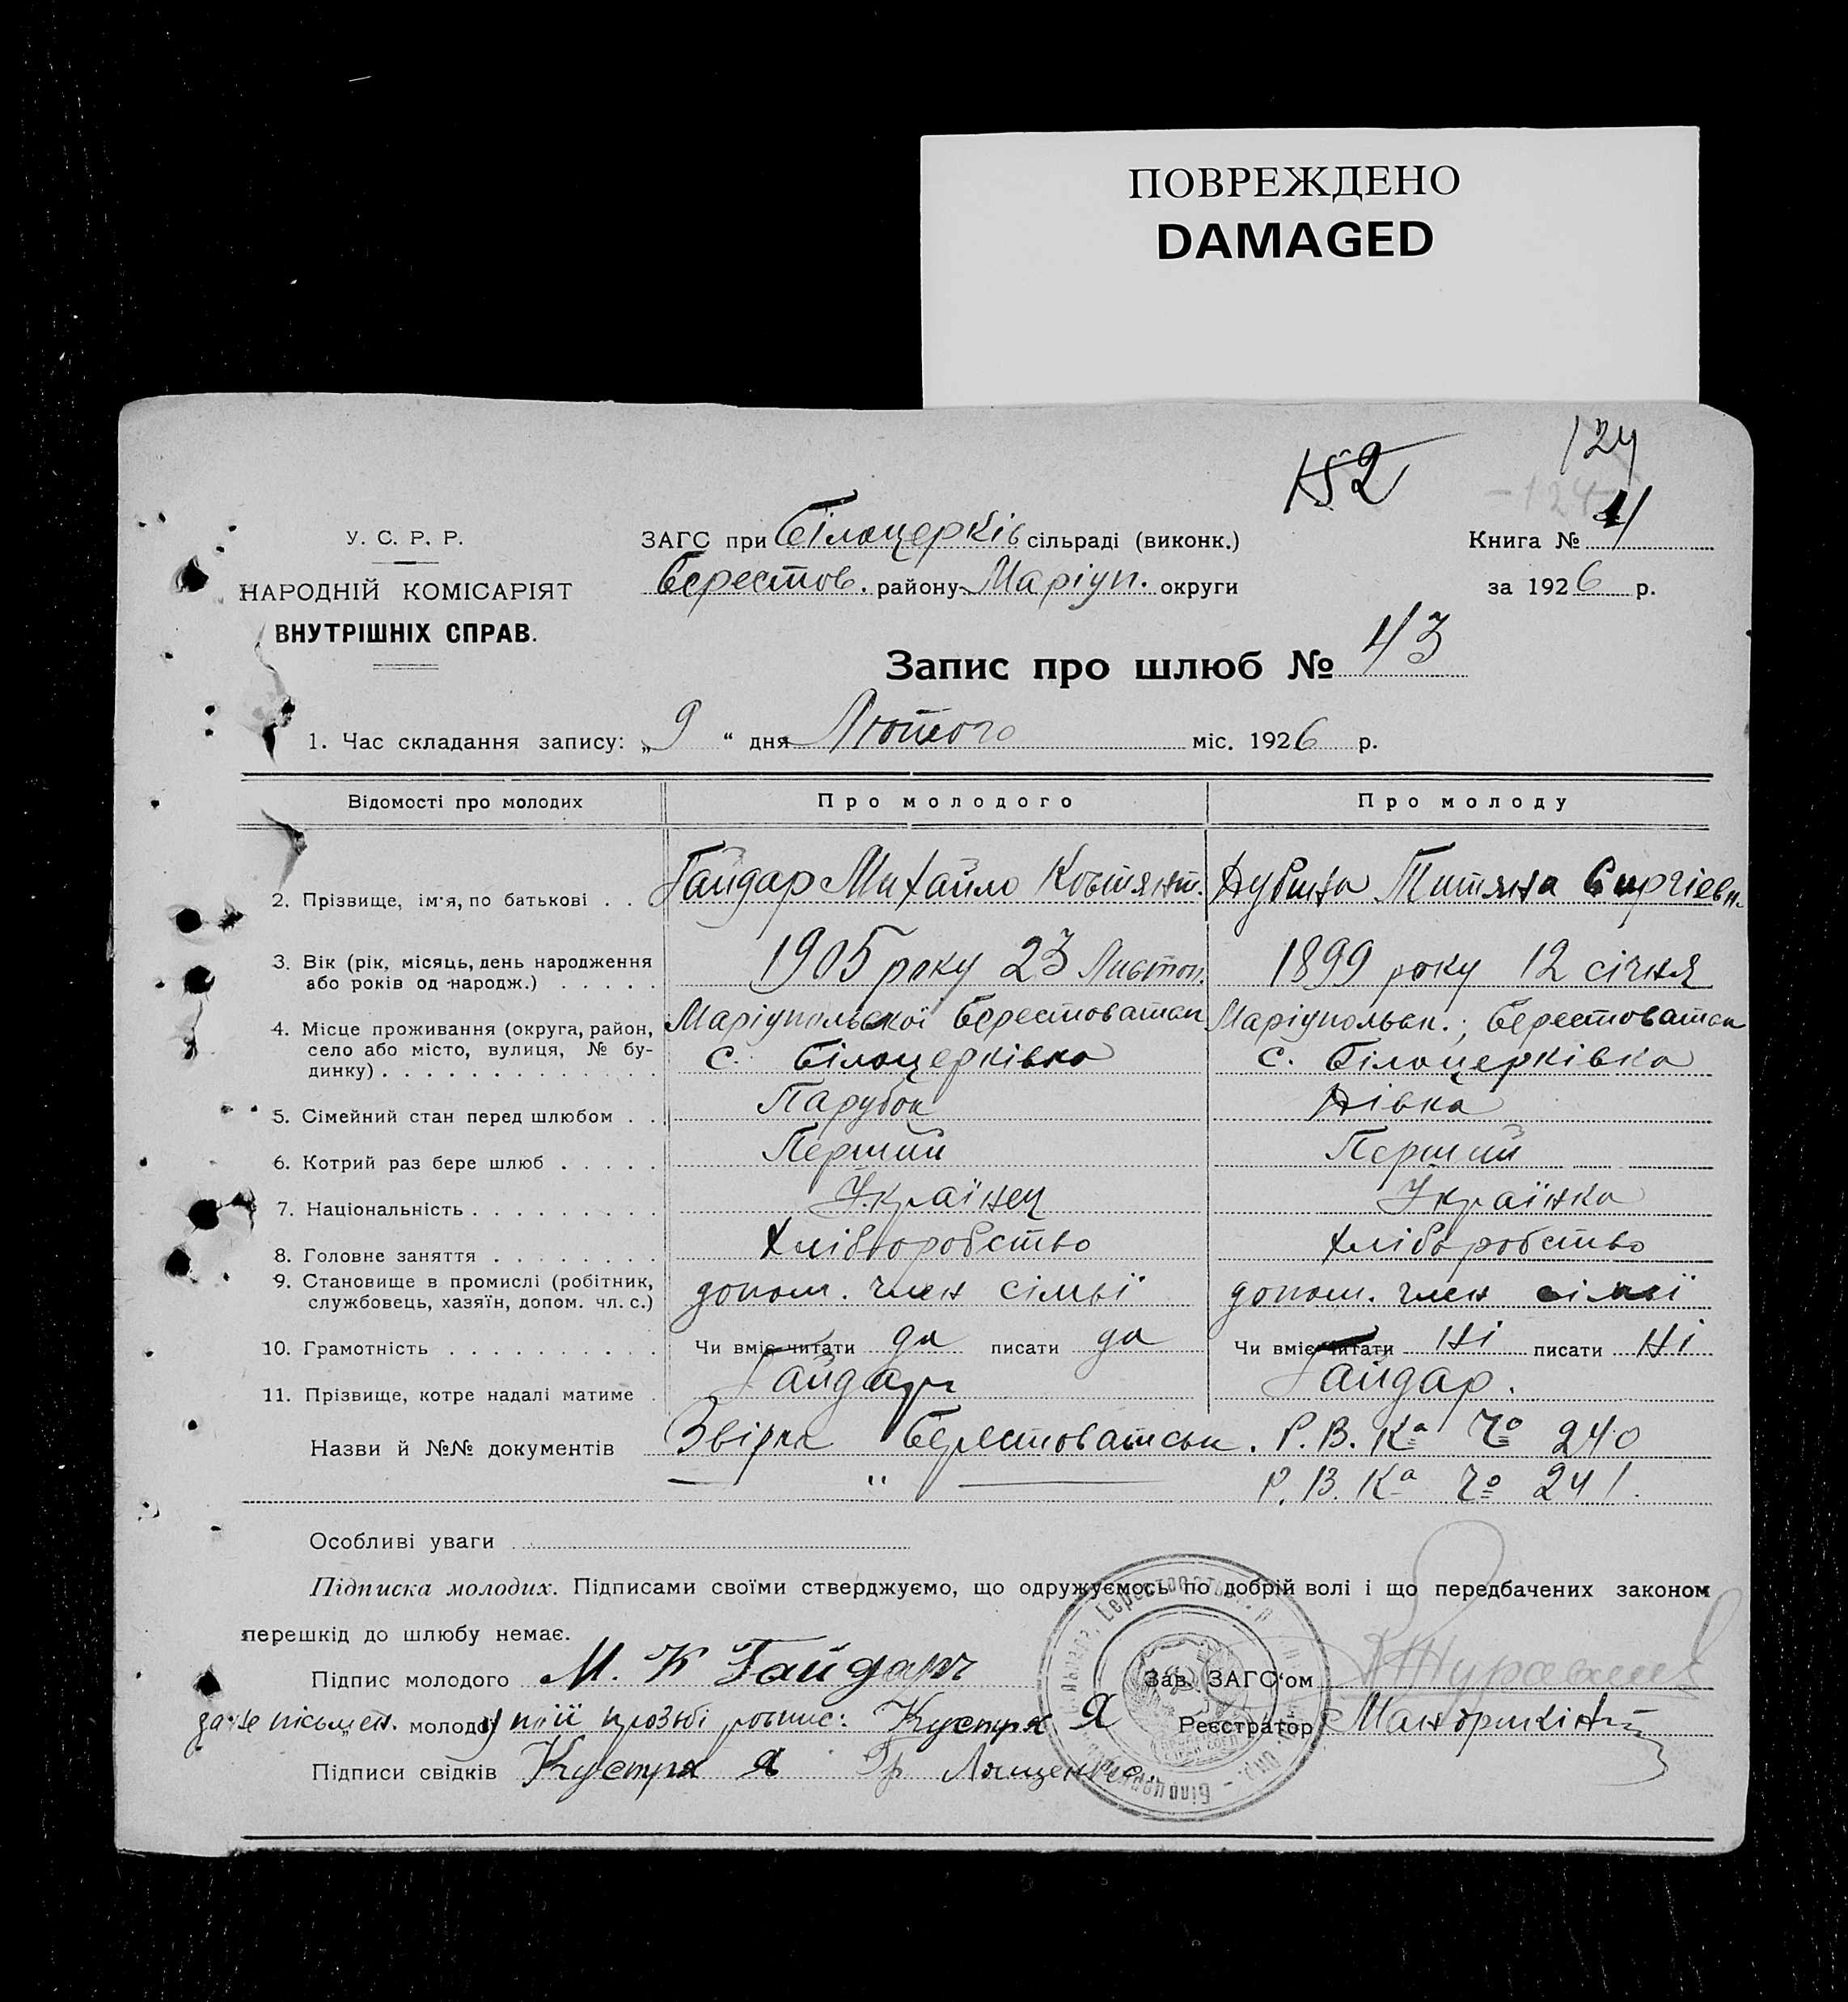 ПОВРЕЖДЕНО
DAMAGED
152
124
-124-
У. С. Р. Р.
НАРОДНІЙ КОМІСАРІЯТ
ВНУТРІШНІХ СПРАВ.
ЗАГС при Білоцерків сільраді (виконк.)
Берестов. району Маріуп. округи
Книга №
за 1926 р.
Запис про шлюб № 43
1. Час складання запису: „9“ дня Лютого міс. 1926 р.
Відомості про молодих Про молодого Про молоду
2. Прізвище, ім'я, по батькові . . Гайдар Михайло Костянт. Дубина Титяна Сиргіевн.
3. Вік (рік, місяць, день народження 1905 року 23 Листоп. 1899 року 12 січня
або років од народж.) . . . . .
4. Місце проживання (округа, район, Маріупольской Берестоватск Маріупольск.; Берестоватск
село або місто, вулиця, № бу- с. Білоцерківка с. Білоцерківка
динку) . . . . . . . . . . . . .
5. Сімейний стан перед шлюбом . . Парубок Дівка
6. Котрий раз бере шлюб . . . . . Перший Перший
7. Національність . . . . . . . . . Українец Українка
8. Головне заняття . . . . . . . . Хліборобство Хліборобство
9. Становище в промислі (робітник, допом. член сімьї допом. член сімьї
службовець, хазяїн, допом. чл. с.)
10. Грамотність . . . . . . . . . . Чи вміє читати да писати да Чи вміє читати Ні писати Ні
11. Прізвище, котре надалі матиме . Гайдарь Гайдар.
Назви й №№ документів Звірка Берестоватськ. Р. В. Ка Чо 240
— " — Р. В. Ка Чо 241.
Особливі уваги
Підписка молодих. Підписами своїми стверджуємо, що одружуємось по добрій волі і що передбачених законом
перешкід до шлюбу немає.
Підпис молодого М. К Гайдарь Зав. ЗАГС'ом
за не письмен. „ молодої по її прозьбі роспис: Кустря Я Реєстратор
Підписи свідків Кустря Я Гр Лященко